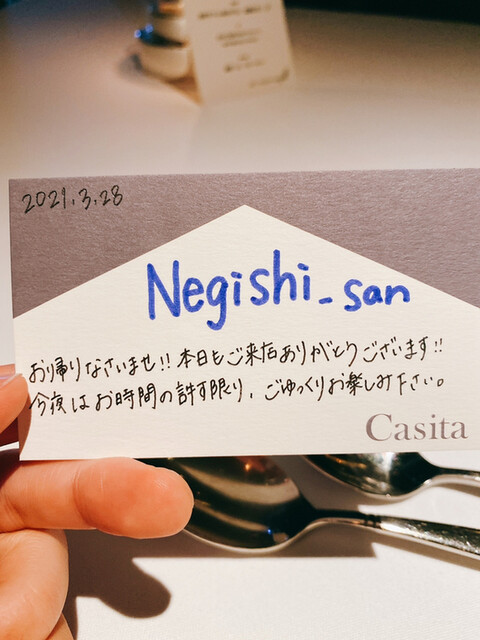 2021.3.28
Negishi_san
お帰りなさいませ!!本日もご来店ありがとうございます!!
今夜はお時間の許す限り、ごゆっくりお楽しみ下さい。
Casita